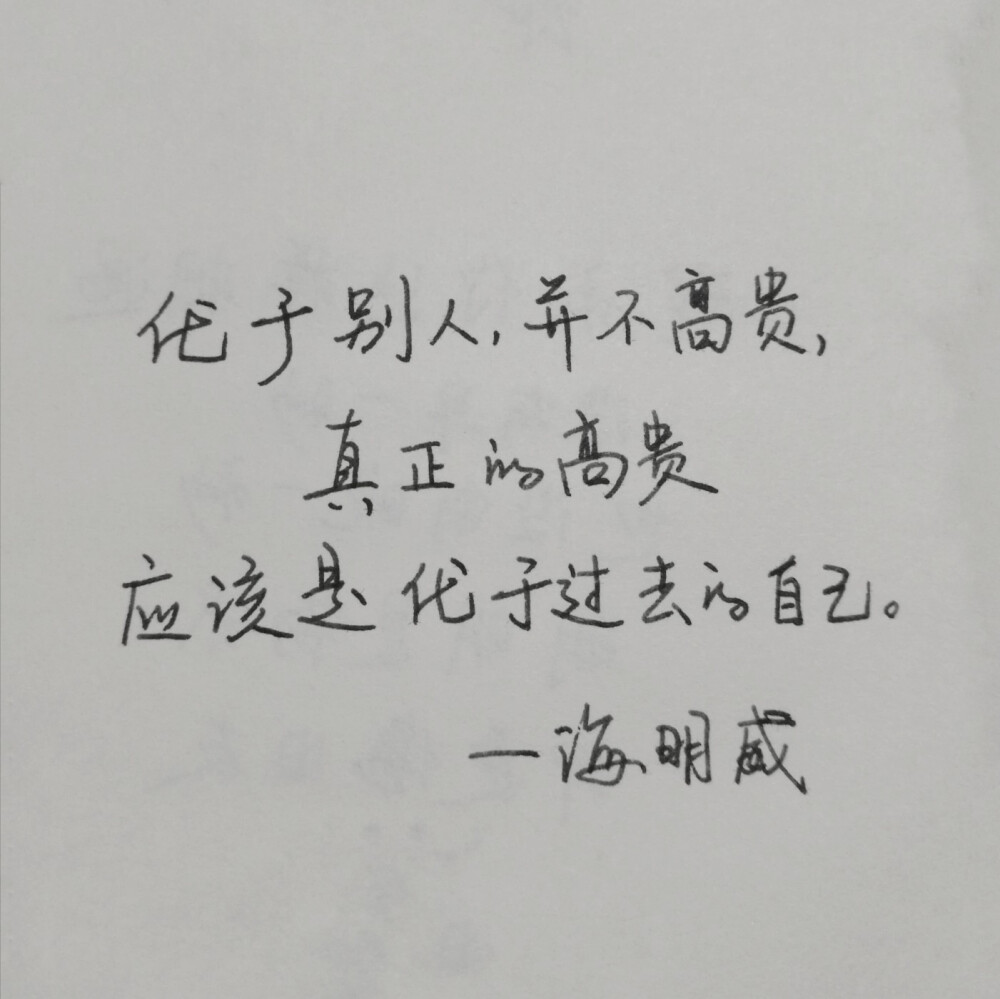 优于别人,并不高贵,
真正的高贵
应该是优于过去的自己。
—海明威